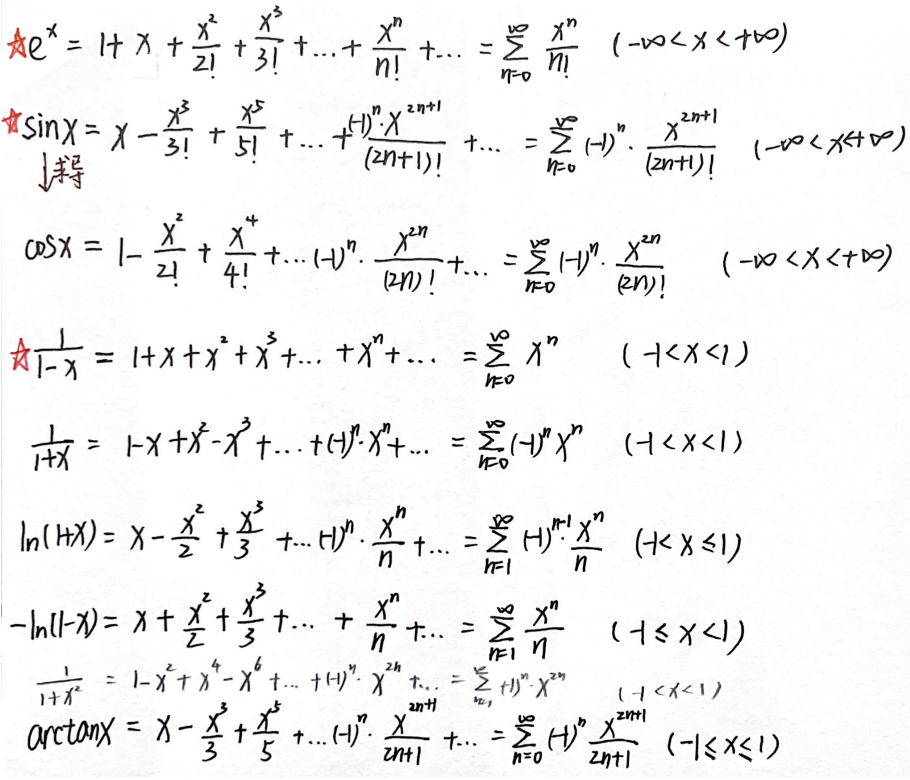 ☆e^x = 1 + x + x²/2! + x³/3! + ... + xⁿ/n! + ... = ∑_{n=0}^{∞} xⁿ/n! (-∞ < x < +∞)
☆sinx = x - x³/3! + x⁵/5! + ... + (-1)ⁿ·x^{2n+1}/(2n+1)! + ... = ∑_{n=0}^{∞} (-1)ⁿ · x^{2n+1}/(2n+1)! (-∞ < x < +∞)
↓求导
cosx = 1 - x²/2! + x⁴/4! + ... (-1)ⁿ · x^{2n}/(2n)! + ... = ∑_{n=0}^{∞} (-1)ⁿ · x^{2n}/(2n)! (-∞ < x < +∞)
☆1/(1-x) = 1 + x + x² + x³ + ... + xⁿ + ... = ∑_{n=0}^{∞} xⁿ (-1 < x < 1)
1/(1+x) = 1 - x + x² - x³ + ... + (-1)ⁿ·xⁿ + ... = ∑_{n=0}^{∞} (-1)ⁿ xⁿ (-1 < x < 1)
ln(1+x) = x - x²/2 + x³/3 + ... (-1)ⁿ · xⁿ/n + ... = ∑_{n=1}^{∞} (-1)^{n-1}·xⁿ/n (-1 < x ≤ 1)
-ln(1-x) = x + x²/2 + x³/3 + ... + xⁿ/n + ... = ∑_{n=1}^{∞} xⁿ/n (-1 ≤ x < 1)
1/(1+x²) = 1 - x² + x⁴ - x⁶ + ... + (-1)ⁿ · x^{2n} + ... = ∑ (-1)ⁿ · x^{2n} (-1 < x < 1)
arctanx = x - x³/3 + x⁵/5 + ... (-1)ⁿ · x^{2n+1}/(2n+1) + ... = ∑_{n=0}^{∞} (-1)ⁿ x^{2n+1}/(2n+1) (-1 ≤ x ≤ 1)